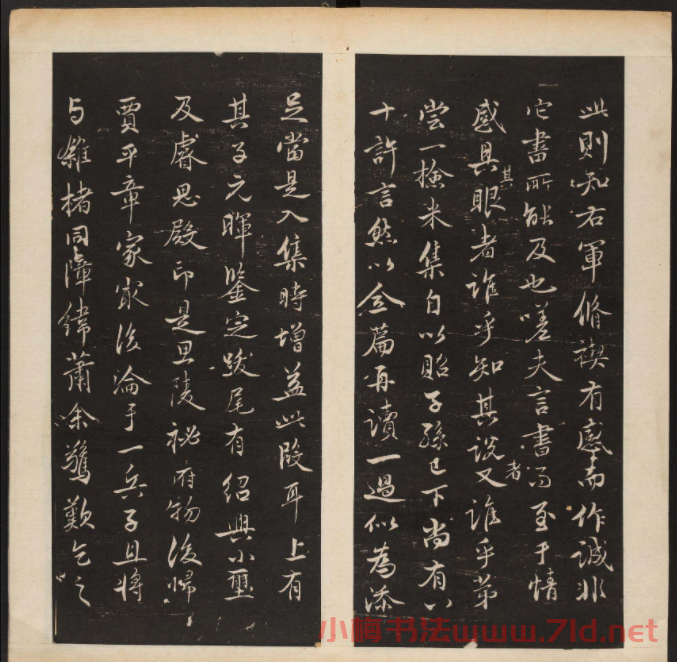 此则知右軍脩禊有感而作誠非
它書所能及也嗟夫言書而至于情
感具眼者誰乎知其說者又誰乎第
其
嘗一撿米集自以貽子孫已下尚有八
十許言然以全篇再讀一過似為添
足當是入集時增益此段耳上有
其子元暉鑒定跋尾有紹興小璽
及睿思殿印是思陵祕府物後歸
賈平章家家後淪于一兵子且將
与雜楮同障緯蕭余驚歎乞之
小梅书法www.7ld.net